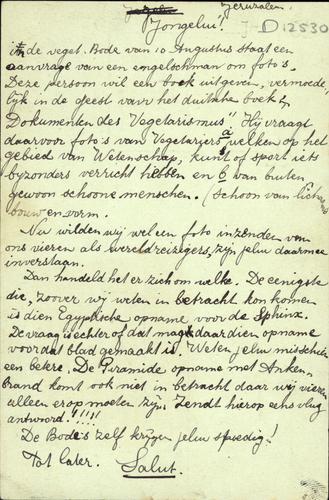 Jeruzalem.
D 12530
"Jongelui"!
In de veget. Bode van 10 Augustus staat een
aanvrage van een engelschman om foto's.
Deze persoon wil een boek uitgeven, vermoede-
lijk in de geest van het duitsche boek
"Dokumenten des Vegetarismus". Hij vraagt
daarvoor foto's van Vegetariërs a welken op het
gebied van Wetenschap, kunst of sport iets
byzonders verricht hebben en b van buiten
gewoon schoone menschen. (schoon van lichaams
bouw en vorm.
Nu wilden wij wel een foto inzenden van
ons vieren als wereldreizigers, zijn jelui daarmee
inverstaan.
Dan handeld het er zich om welke. De eenigste
die, zoover wij weten in betracht kon komen
is dien Egyptische opname voor de Sphinx.
De vraag is echter of dat mag daar dien opname
voor dat blad gemaakt is. Weten jelui misschien
een betere. De Piramide opname met Anken-
brand komt ook niet in betracht daar wij vieren
alleen erop moeten zijn. Zendt hierop eens vlug
antwoord!!!!!
De Bode's zelf krijgen jelui spoedig!
Tot later. Salut.